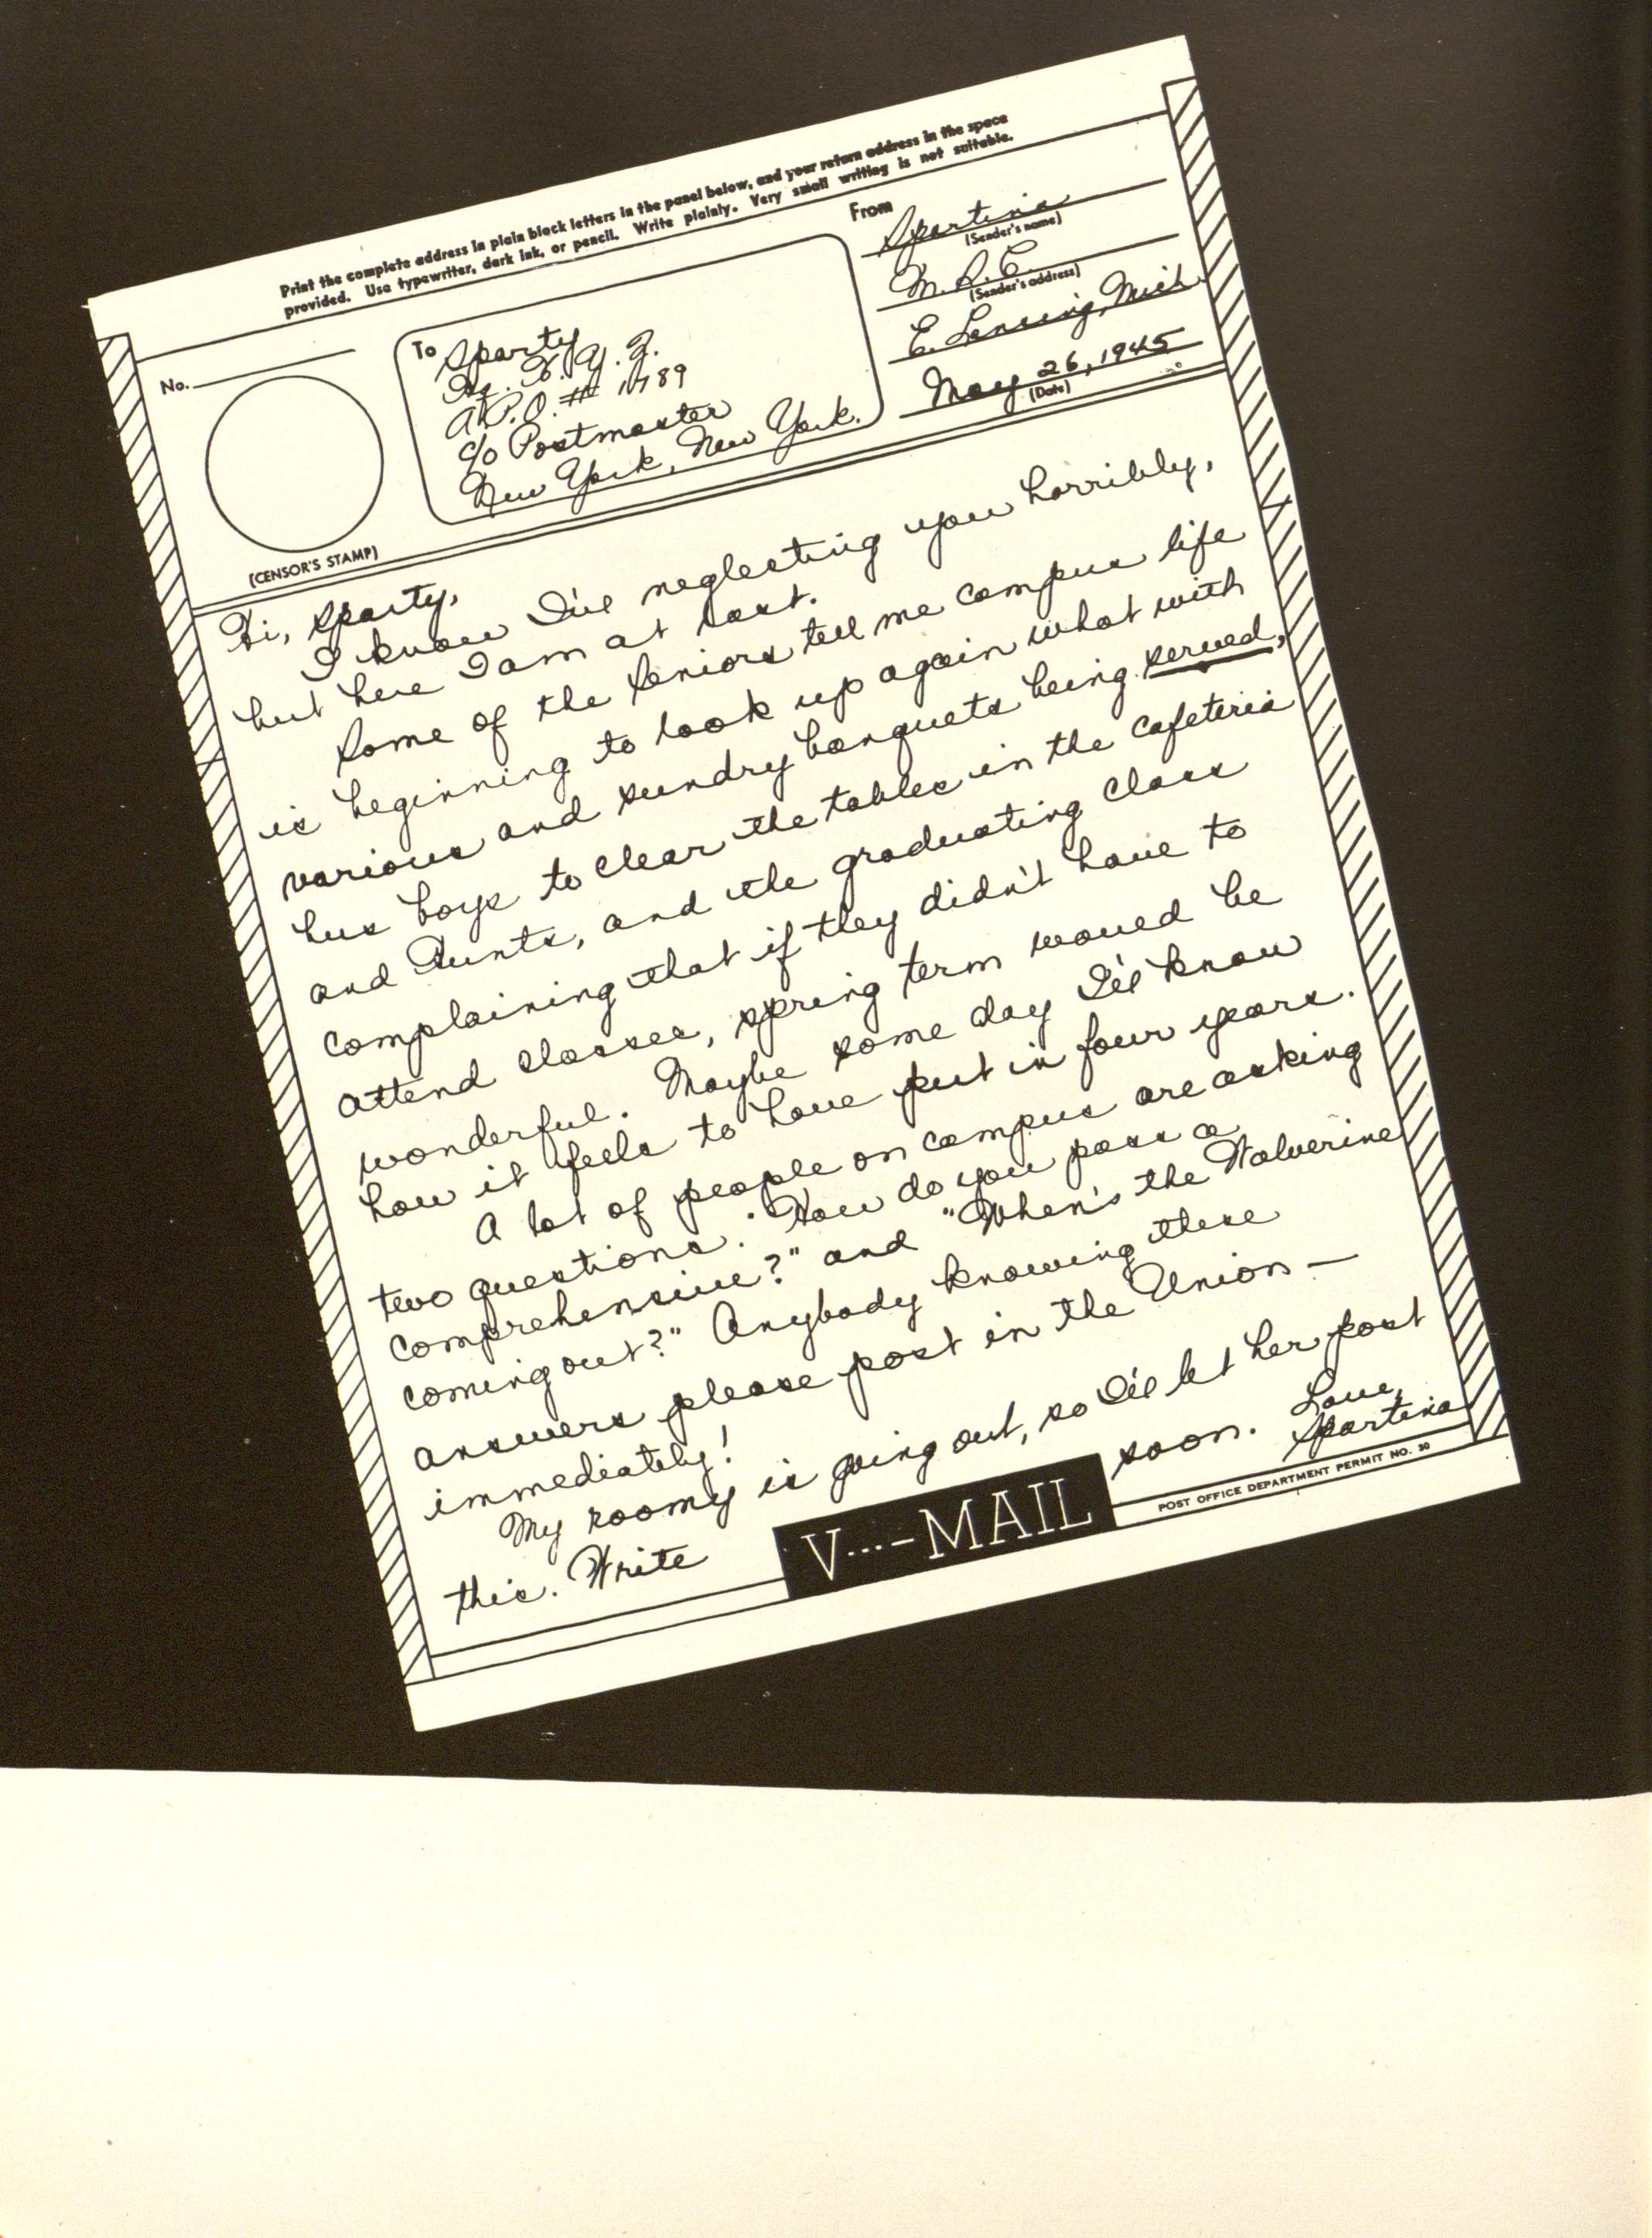 Print the complete address in plain block letters in the panel below, and your return address in the space
provided. Use typewriter, dark ink, or pencil. Write plainly. Very small writing is not suitable.
No.
(CENSOR'S STAMP)
To Sparty
Hq. X.Y.Z.
A.P.O. # 1789
c/o Postmaster
New York, New York.
From
Spartina
(Sender's name)
M.S.C.
(Sender's address)
E. Lansing, Mich.
May 26, 1945
(Date)
Hi, Sparty,
I know I've neglecting you horribly,
but here I am at last.
Some of the Seniors tell me campus life
is beginning to look up again what with
various and sundry banquets being served,
bus boys to clear the tables in the cafeteria
and Hunts, and the graduating class
complaining that if they didn't have to
attend classes, spring term would be
wonderful. Maybe some day I'll know
how it feels to have put in four years.
A lot of people on campus are asking
two questions. "How do you pass a
comprehensive?" and "When's the Wolverine
coming out?" Anybody knowing these
answers please post in the Union —
immediately!
My roomy is going out, so I'll let her post
this. Write soon.
Love,
Spartina
V···–MAIL
POST OFFICE DEPARTMENT PERMIT NO. 30